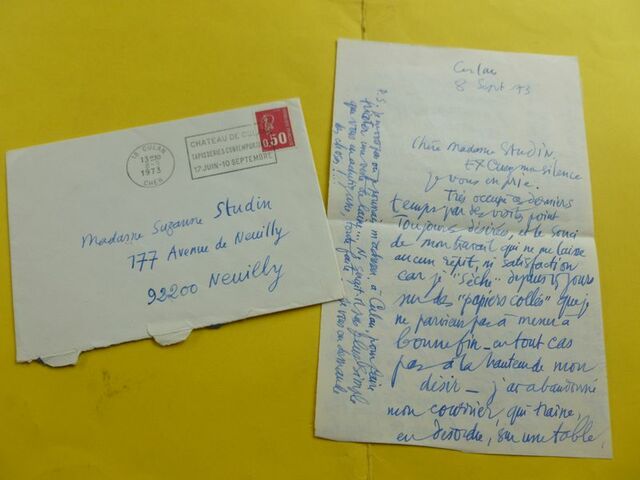 18 CULAN
13H30
8-9
1973
CHER
CHATEAU DE CULAN
TAPISSERIES CONTEMPORAINES
17 JUIN-10 SEPTEMBRE
0,50
Madame Suzanne Studin
177 Avenue de Neuilly
92200 Neuilly
Culan
8 Sept 73
Chère Madame Studin,
Excusez mon silence
je vous en prie.
Très occupé ces derniers
temps par des visites point
toujours désirées, et le souci
de mon travail qui ne me laisse
aucun répit, ni satisfaction
car je "sèche" depuis 15 jours
sur des "papiers collés" que je
ne parviens pas à mener à
bonne fin - en tout cas
pas à la hauteur de mon
désir - j'ai abandonné
mon courrier, qui traîne,
en désordre, sur une table.
P.S. pas où je pourrais m'adresser, à Culan, pour faire